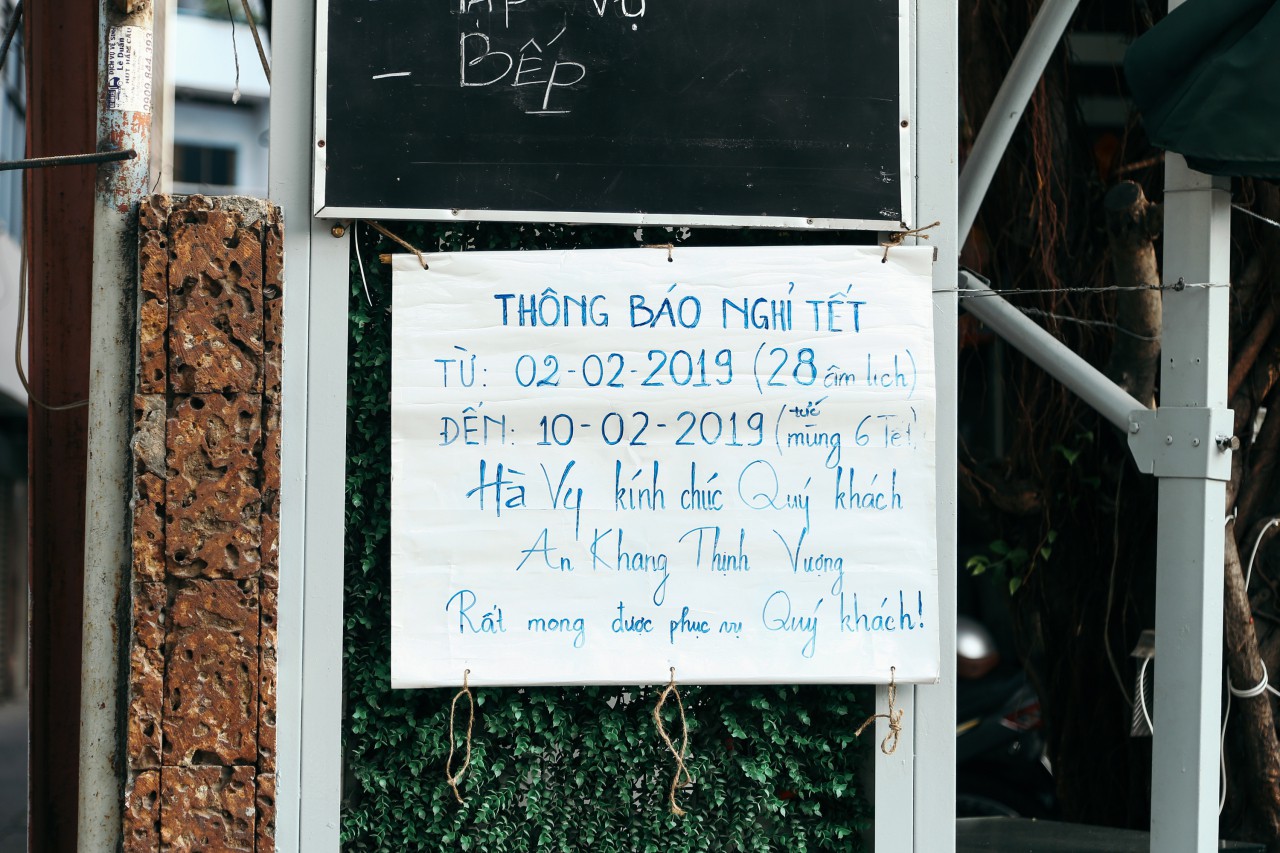 DỊCH VỤ VỆ SINH
Lê Duẩn
HÚT HẦM CẦU
0909.844.393
TẠP VỤ
- BẾP
THÔNG BÁO NGHỈ TẾT
TỪ: 02-02-2019 (28 âm lịch)
ĐẾN: 10-02-2019 (tức mùng 6 Tết)
Hà Vy kính chúc Quý khách
An Khang Thịnh Vượng
Rất mong được phục vụ Quý khách!